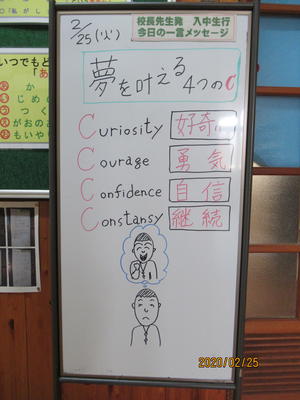 校長先生発 入中生行
今日の一言メッセージ
2/25(火)
夢を叶える
4つのC
Curiosity 好奇心
Courage 勇気
Confidence 自信
Constansy 継続
いつでもど
「あ
か
じめ
つく
がおの
もいや
2020/02/25